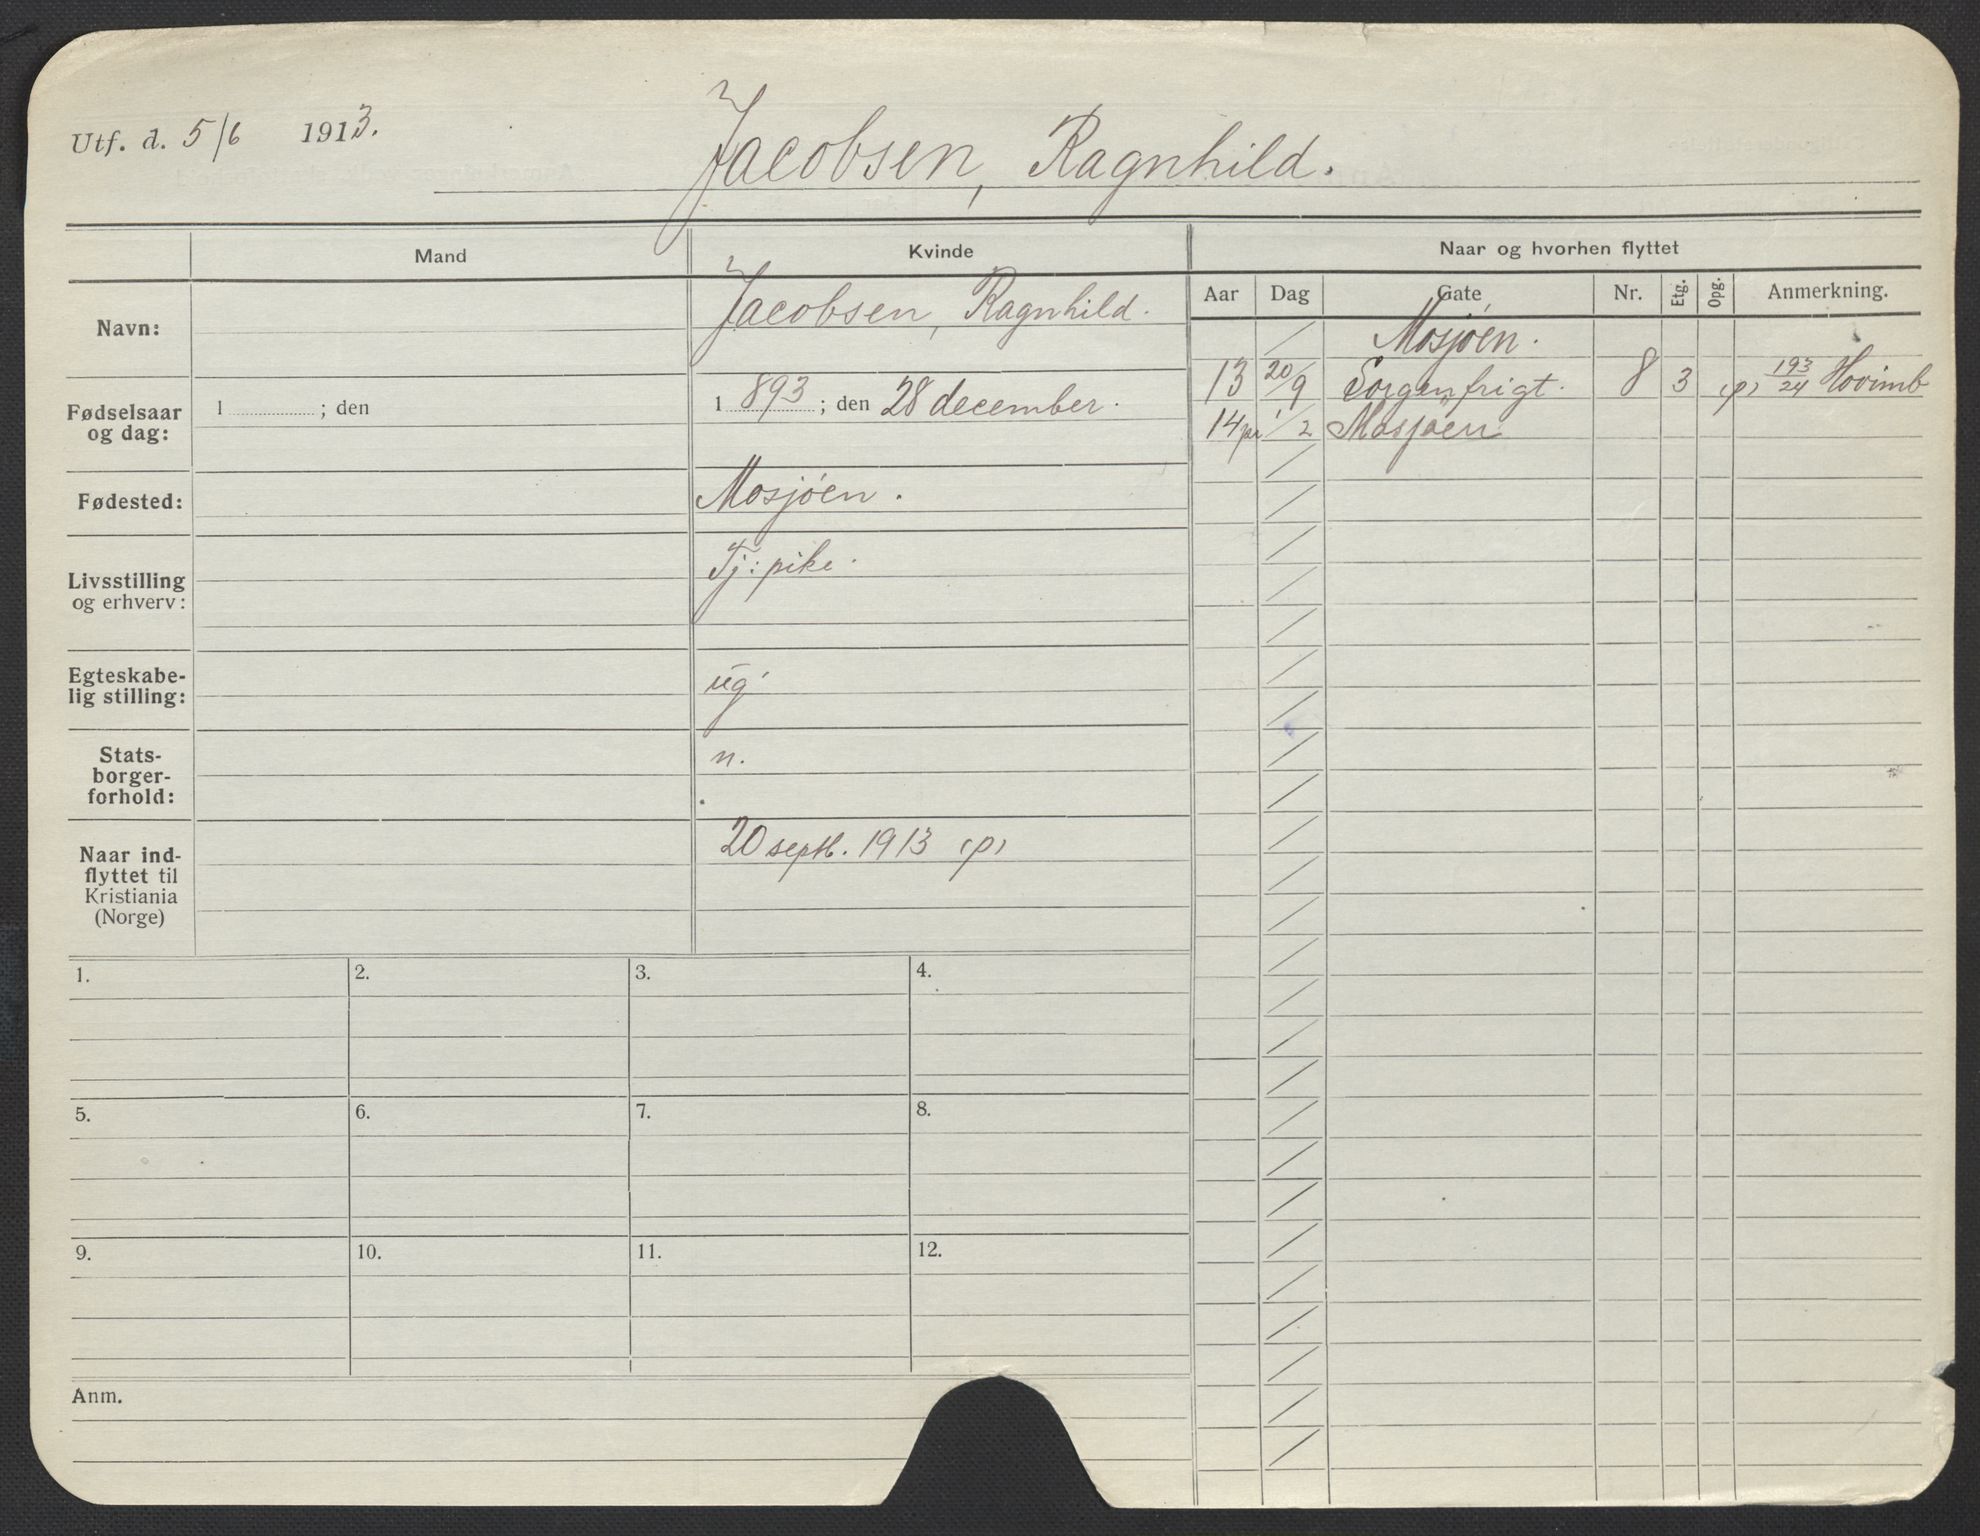 Utf. d. 5/6 1913.
Jacobsen, Ragnhild.
Mand
Kvinde
Navn:
Jacobsen, Ragnhild.
Fødselsaar og dag:
1 ; den
1 893 ; den 28 december.
Fødested:
Mosjöen.
Livsstilling og erhverv:
Tj: pike.
Egteskabe-
lig stilling:
ug
Stats-
borger-
forhold:
n.
Naar ind-
flyttet til
Kristiania
(Norge)
20 septb. 1913 (p)
1.
2.
3.
4.
5.
6.
7.
8.
9.
10.
11.
12.
Anm.
Naar og hvorhen flyttet
Aar Dag Gate Nr. Etg. Opg. Anmerkning.
Mosjöen.
13 20/9 Sorgenfrigt. 8 3 (p) 193/24 Hovimb
14 1/2 Mosjöen